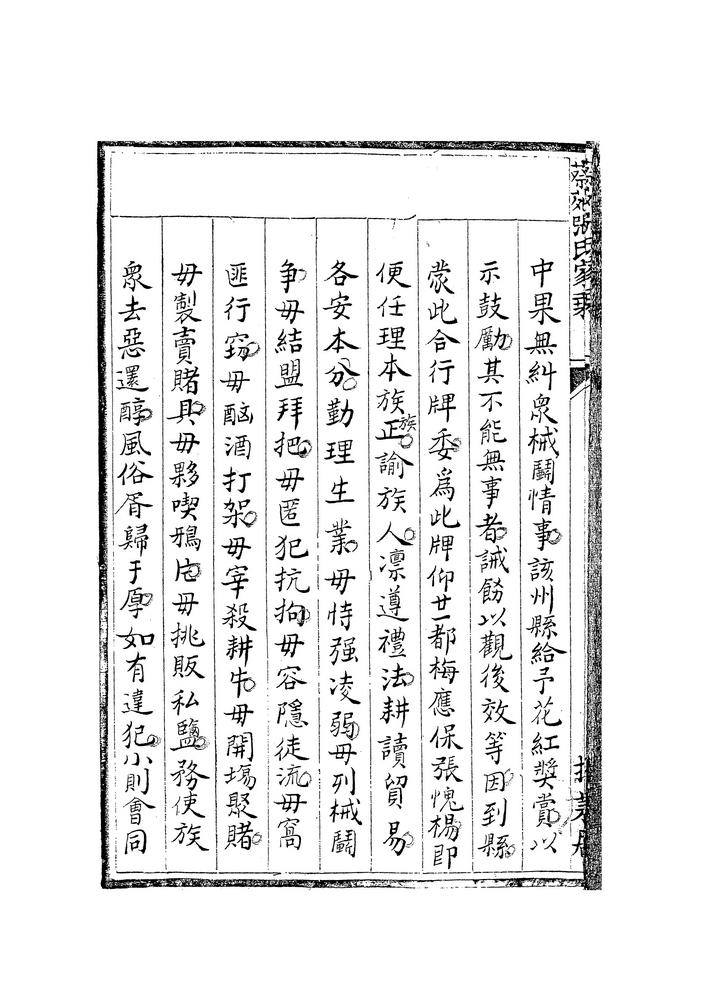 蔡郊張氏家乘
中果無糾衆械鬪情事該州縣給予花紅獎賞以
示鼓勵其不能無事者誡飭以觀後效等因到縣
蒙此合行牌委爲此牌仰廿一都梅應保張愧楊即
便任理本族族正諭族人凛遵禮法耕讀貿易
各安本分勤理生業毋恃强凌弱毋列械鬪
争毋結盟拜把毋匿犯抗拘毋容隱徒流毋窩
匪行窃毋酗酒打架毋宰殺耕牛毋開塲聚賭
毋製賣賭具毋夥喫鴉片毋挑販私鹽務使族
衆去惡還醇風俗胥歸于厚如有違犯小則會同